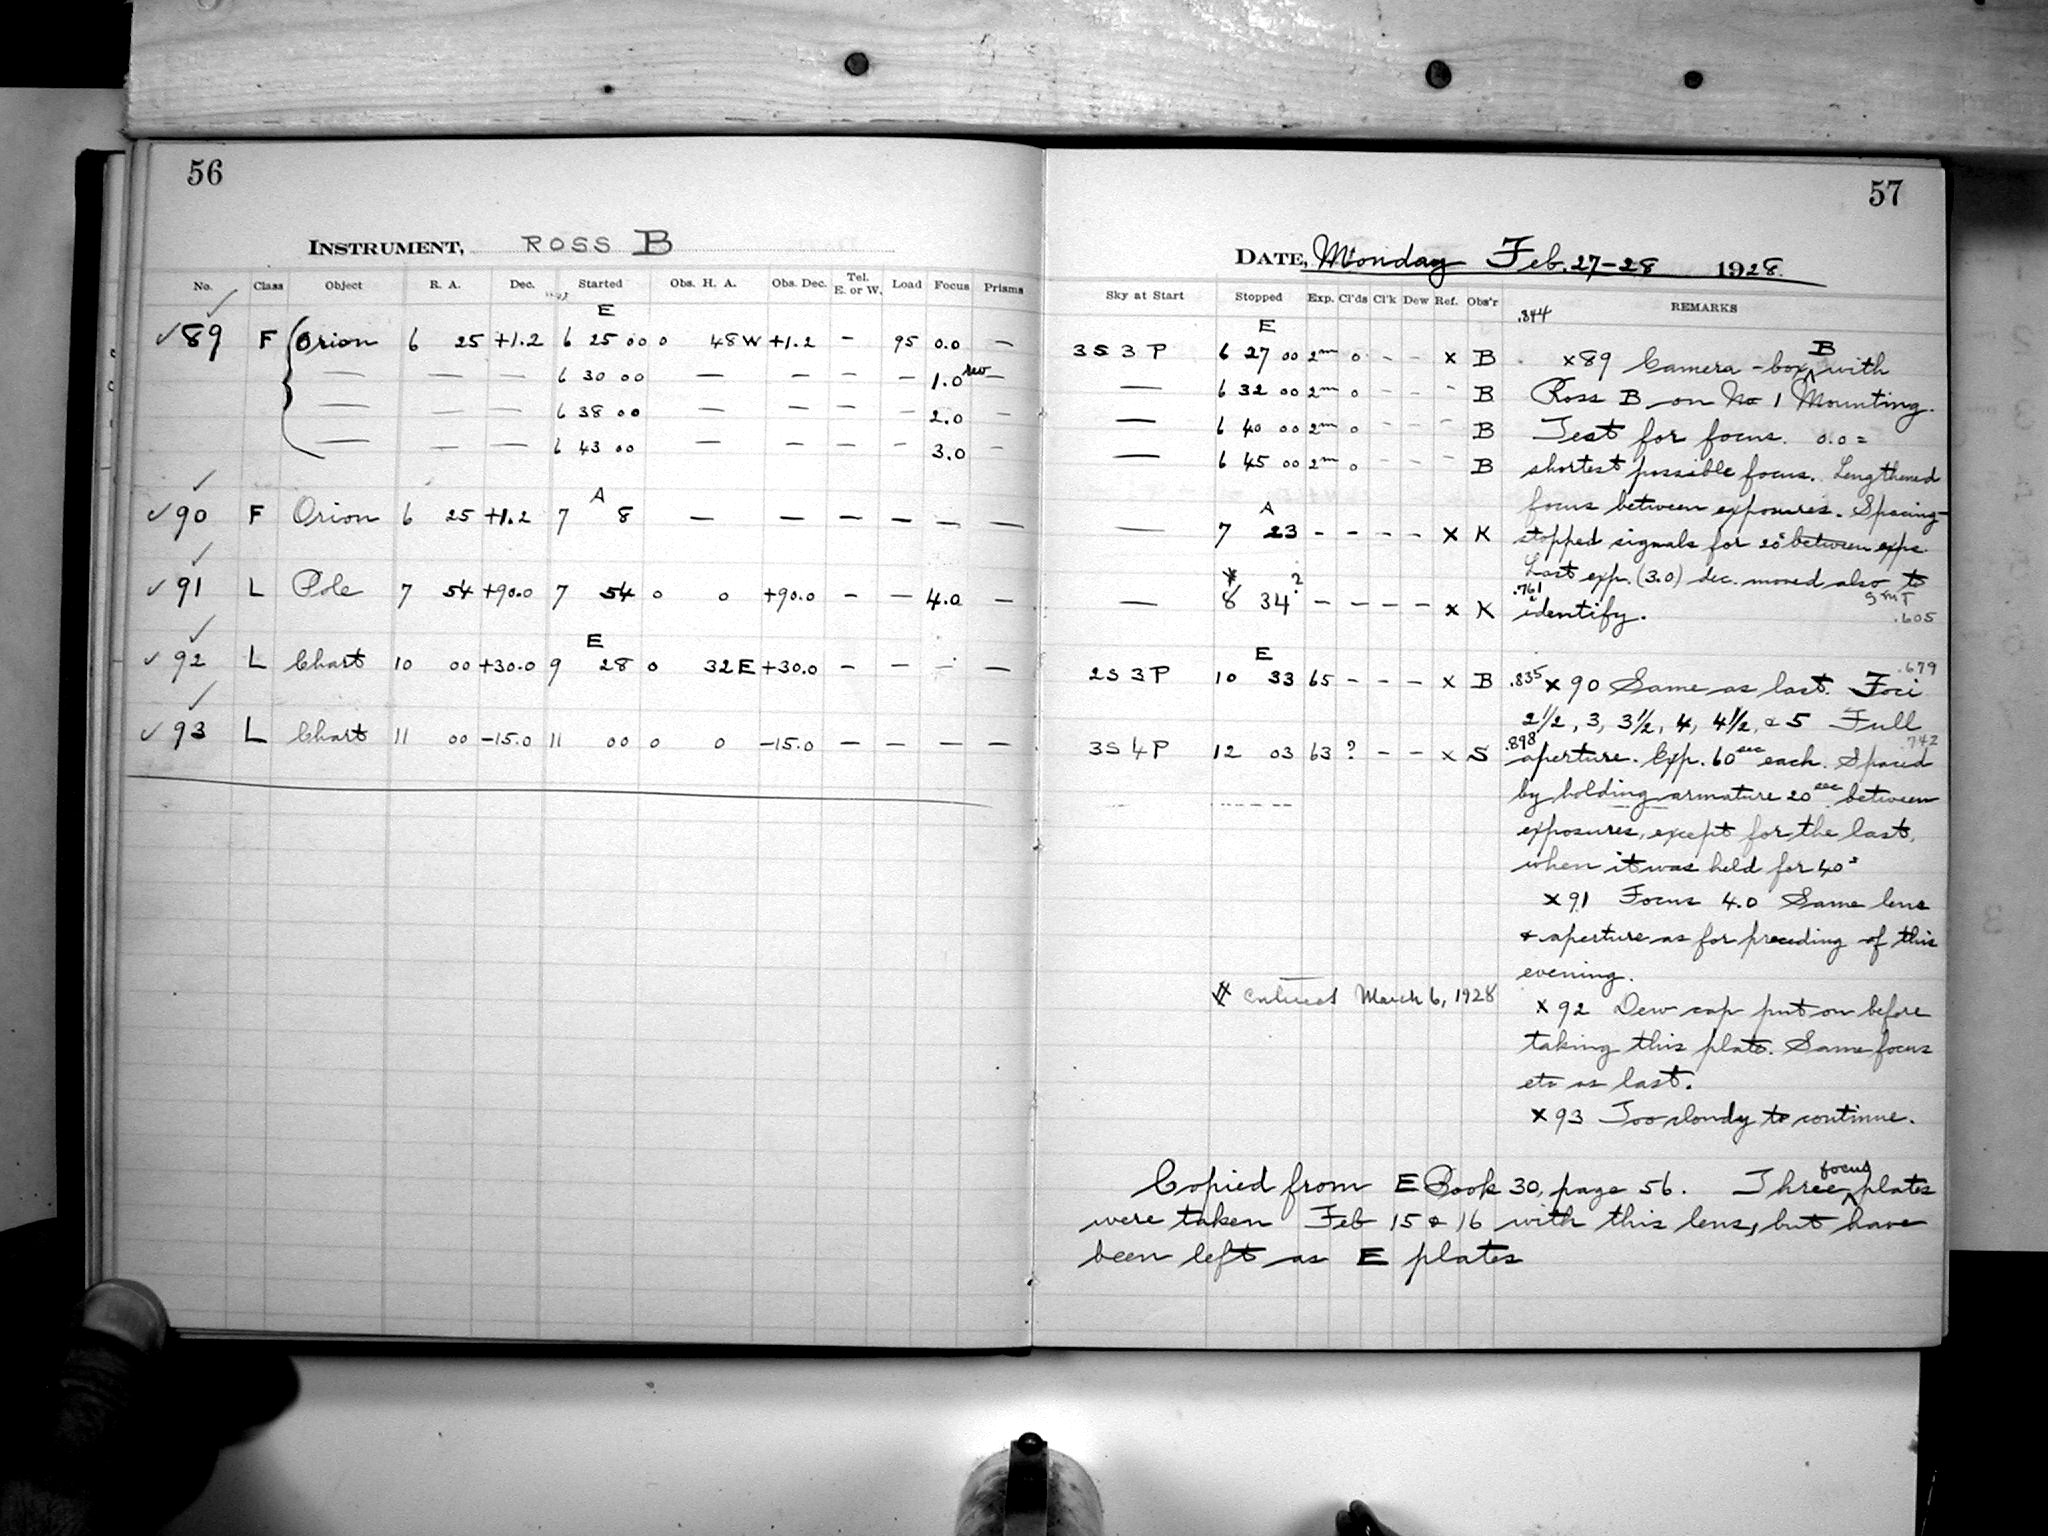 56
INSTRUMENT, ROSS B
No. Class Object R. A. Dec. Started Obs. H. A. Obs. Dec. Tel. E. or W. Load Focus Prisms
E
✓89 F Orion 6 25 +1.2 6 25 00 0 48 W +1.2 — 95 0.0 —
— — — 6 30 00 — — — — 1.0 rev —
— — — 6 38 00 — — — — 2.0 —
— — — 6 43 00 — — — — 3.0 —
A
✓90 F Orion 6 25 +1.2 7 8 — — — — — —
✓91 L Pole 7 54 +90.0 7 54 0 0 +90.0 — — 4.0 —
E
✓92 L Chart 10 00 +30.0 9 28 0 32 E +30.0 — — — —
✓93 L Chart 11 00 −15.0 11 00 0 0 −15.0 — — — —
57
DATE, Monday Feb. 27-28 1928
Sky at Start Stopped Exp. Cl'ds Cl'k Dew Ref. Obs'r REMARKS
.844
E
3S 3P 6 27 00 2m 0 - - x B
— 6 32 00 2m 0 - - - B
— 6 40 00 2m 0 - - - B
— 6 45 00 2m 0 - - - B
A
— 7 23 - - - - x K
— * 8 34? - - - - x K
E
2S 3P 10 33 65 - - - x B
3S 4P 12 03 63 ? - - x S
x89 Camera-box B with
Ross B on No 1 Mounting.
Test for focus. 0.0 =
shortest possible focus. Lengthened
focus between exposures. Spacing—
stopped signals for 20s between exps.
Last exp. (3.0) dec. moved also to
.761 GMT
identify. .605
.679
.835 x90 Same as last. Foci
2½, 3, 3½, 4, 4½, & 5 Full
.898 .742
aperture. Exp. 60sec each. Spaced
by holding armature 20sec between
exposures, except for the last,
when it was held for 40s
x91 Focus 4.0 Same lens
& aperture as for preceding of this
evening.
* entered March 6, 1928
x92 Dew cap put on before
taking this plate. Same focus
etc as last.
x93 Too cloudy to continue.
Copied from E Book 30, page 56. Three focus plates
were taken Feb 15 & 16 with this lens, but have
been left as E plates